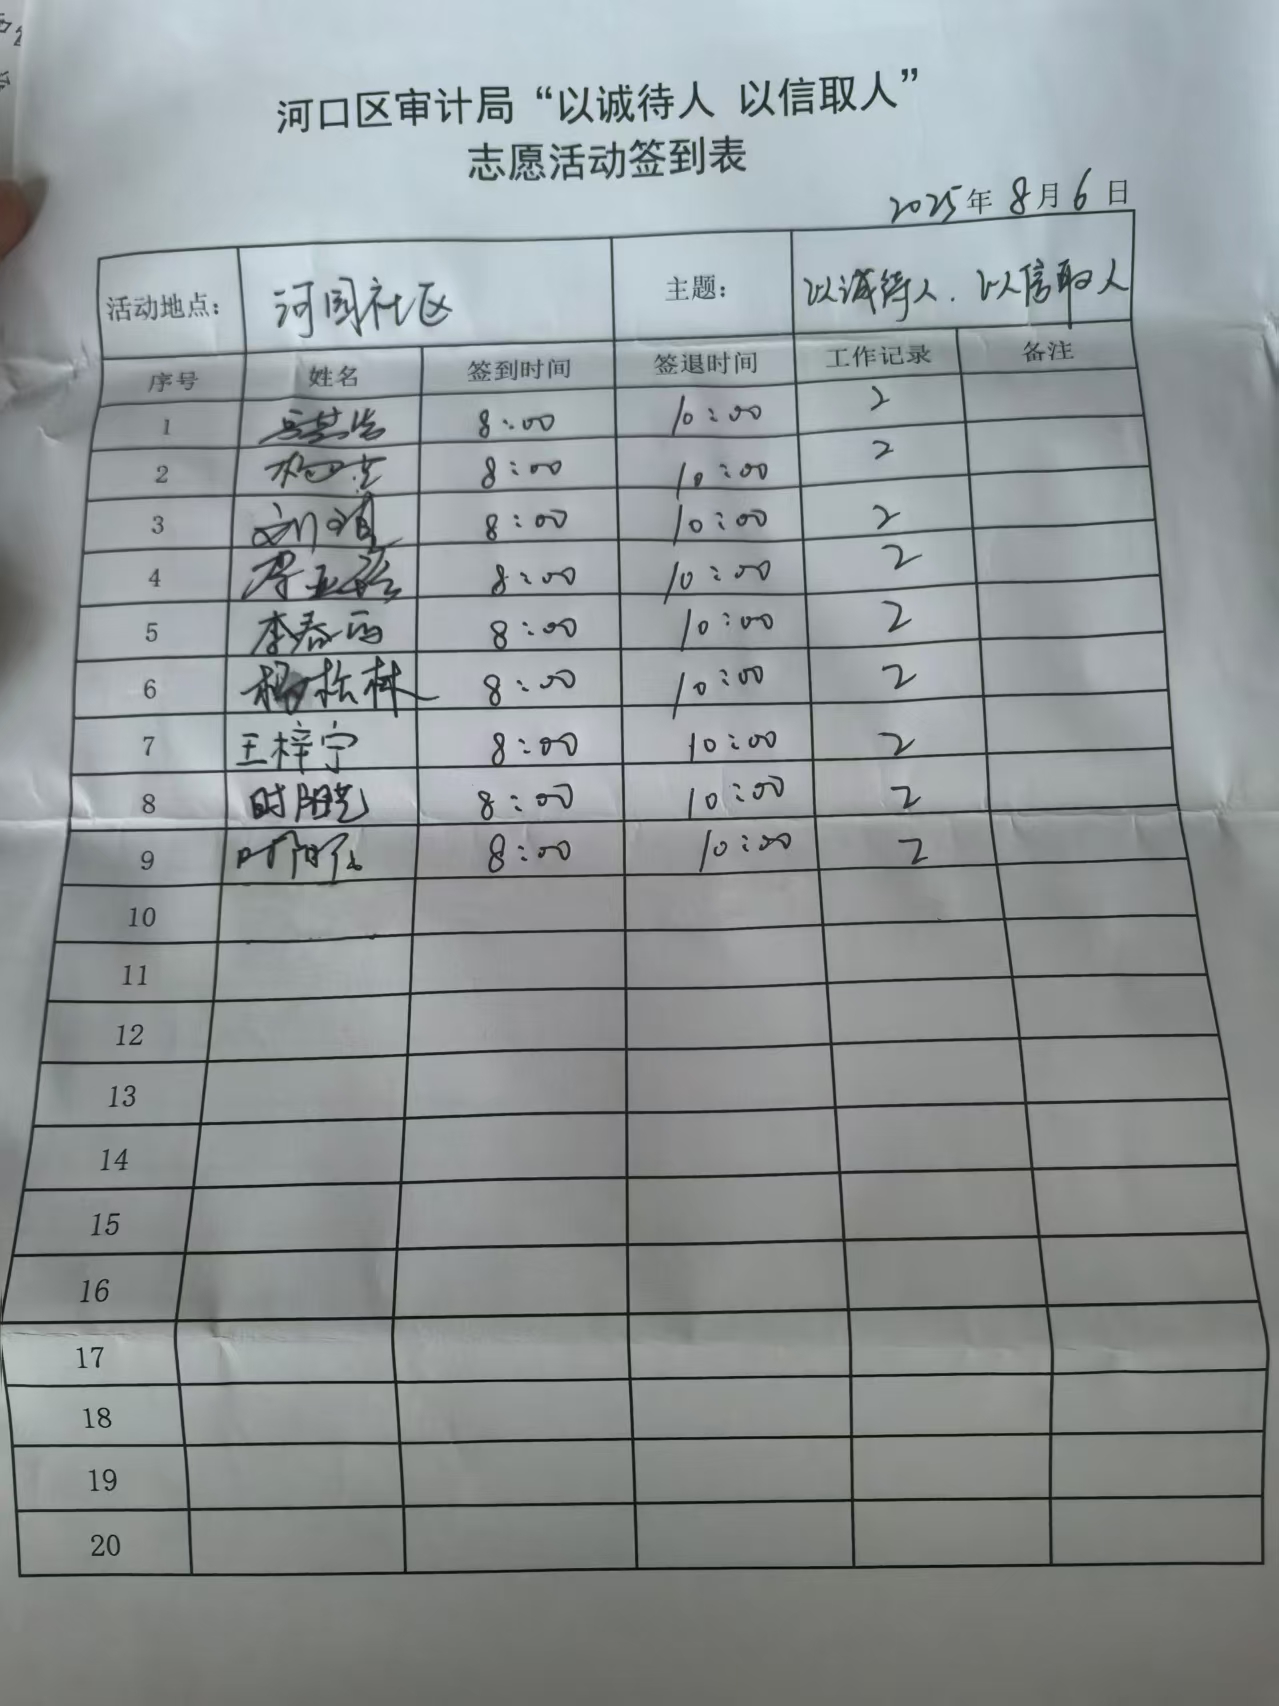 河口区审计局“以诚待人 以信取人”
志愿活动签到表
2025年8月6日
活动地点: 河园社区 主题: 以诚待人、以信取人
序号 姓名 签到时间 签退时间 工作记录 备注
1 8:00 10:00 2
2 8:00 10:00 2
3 刘 8:00 10:00 2
4 8:00 10:00 2
5 李春雨 8:00 10:00 2
6 杨松林 8:00 10:00 2
7 王梓宁 8:00 10:00 2
8 时阳 8:00 10:00 2
9 时阳 8:00 10:00 2
10
11
12
13
14
15
16
17
18
19
20